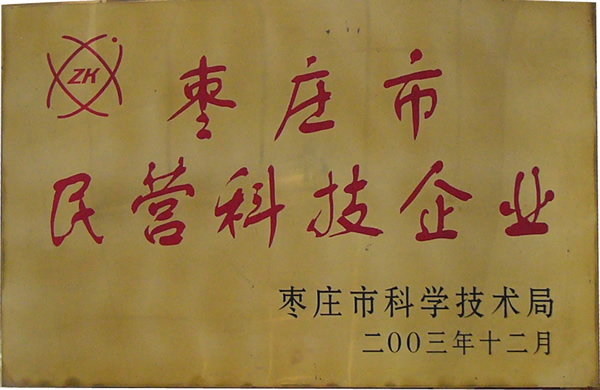 ZK
枣庄市
民营科技企业
枣庄市科学技术局
二00三年十二月